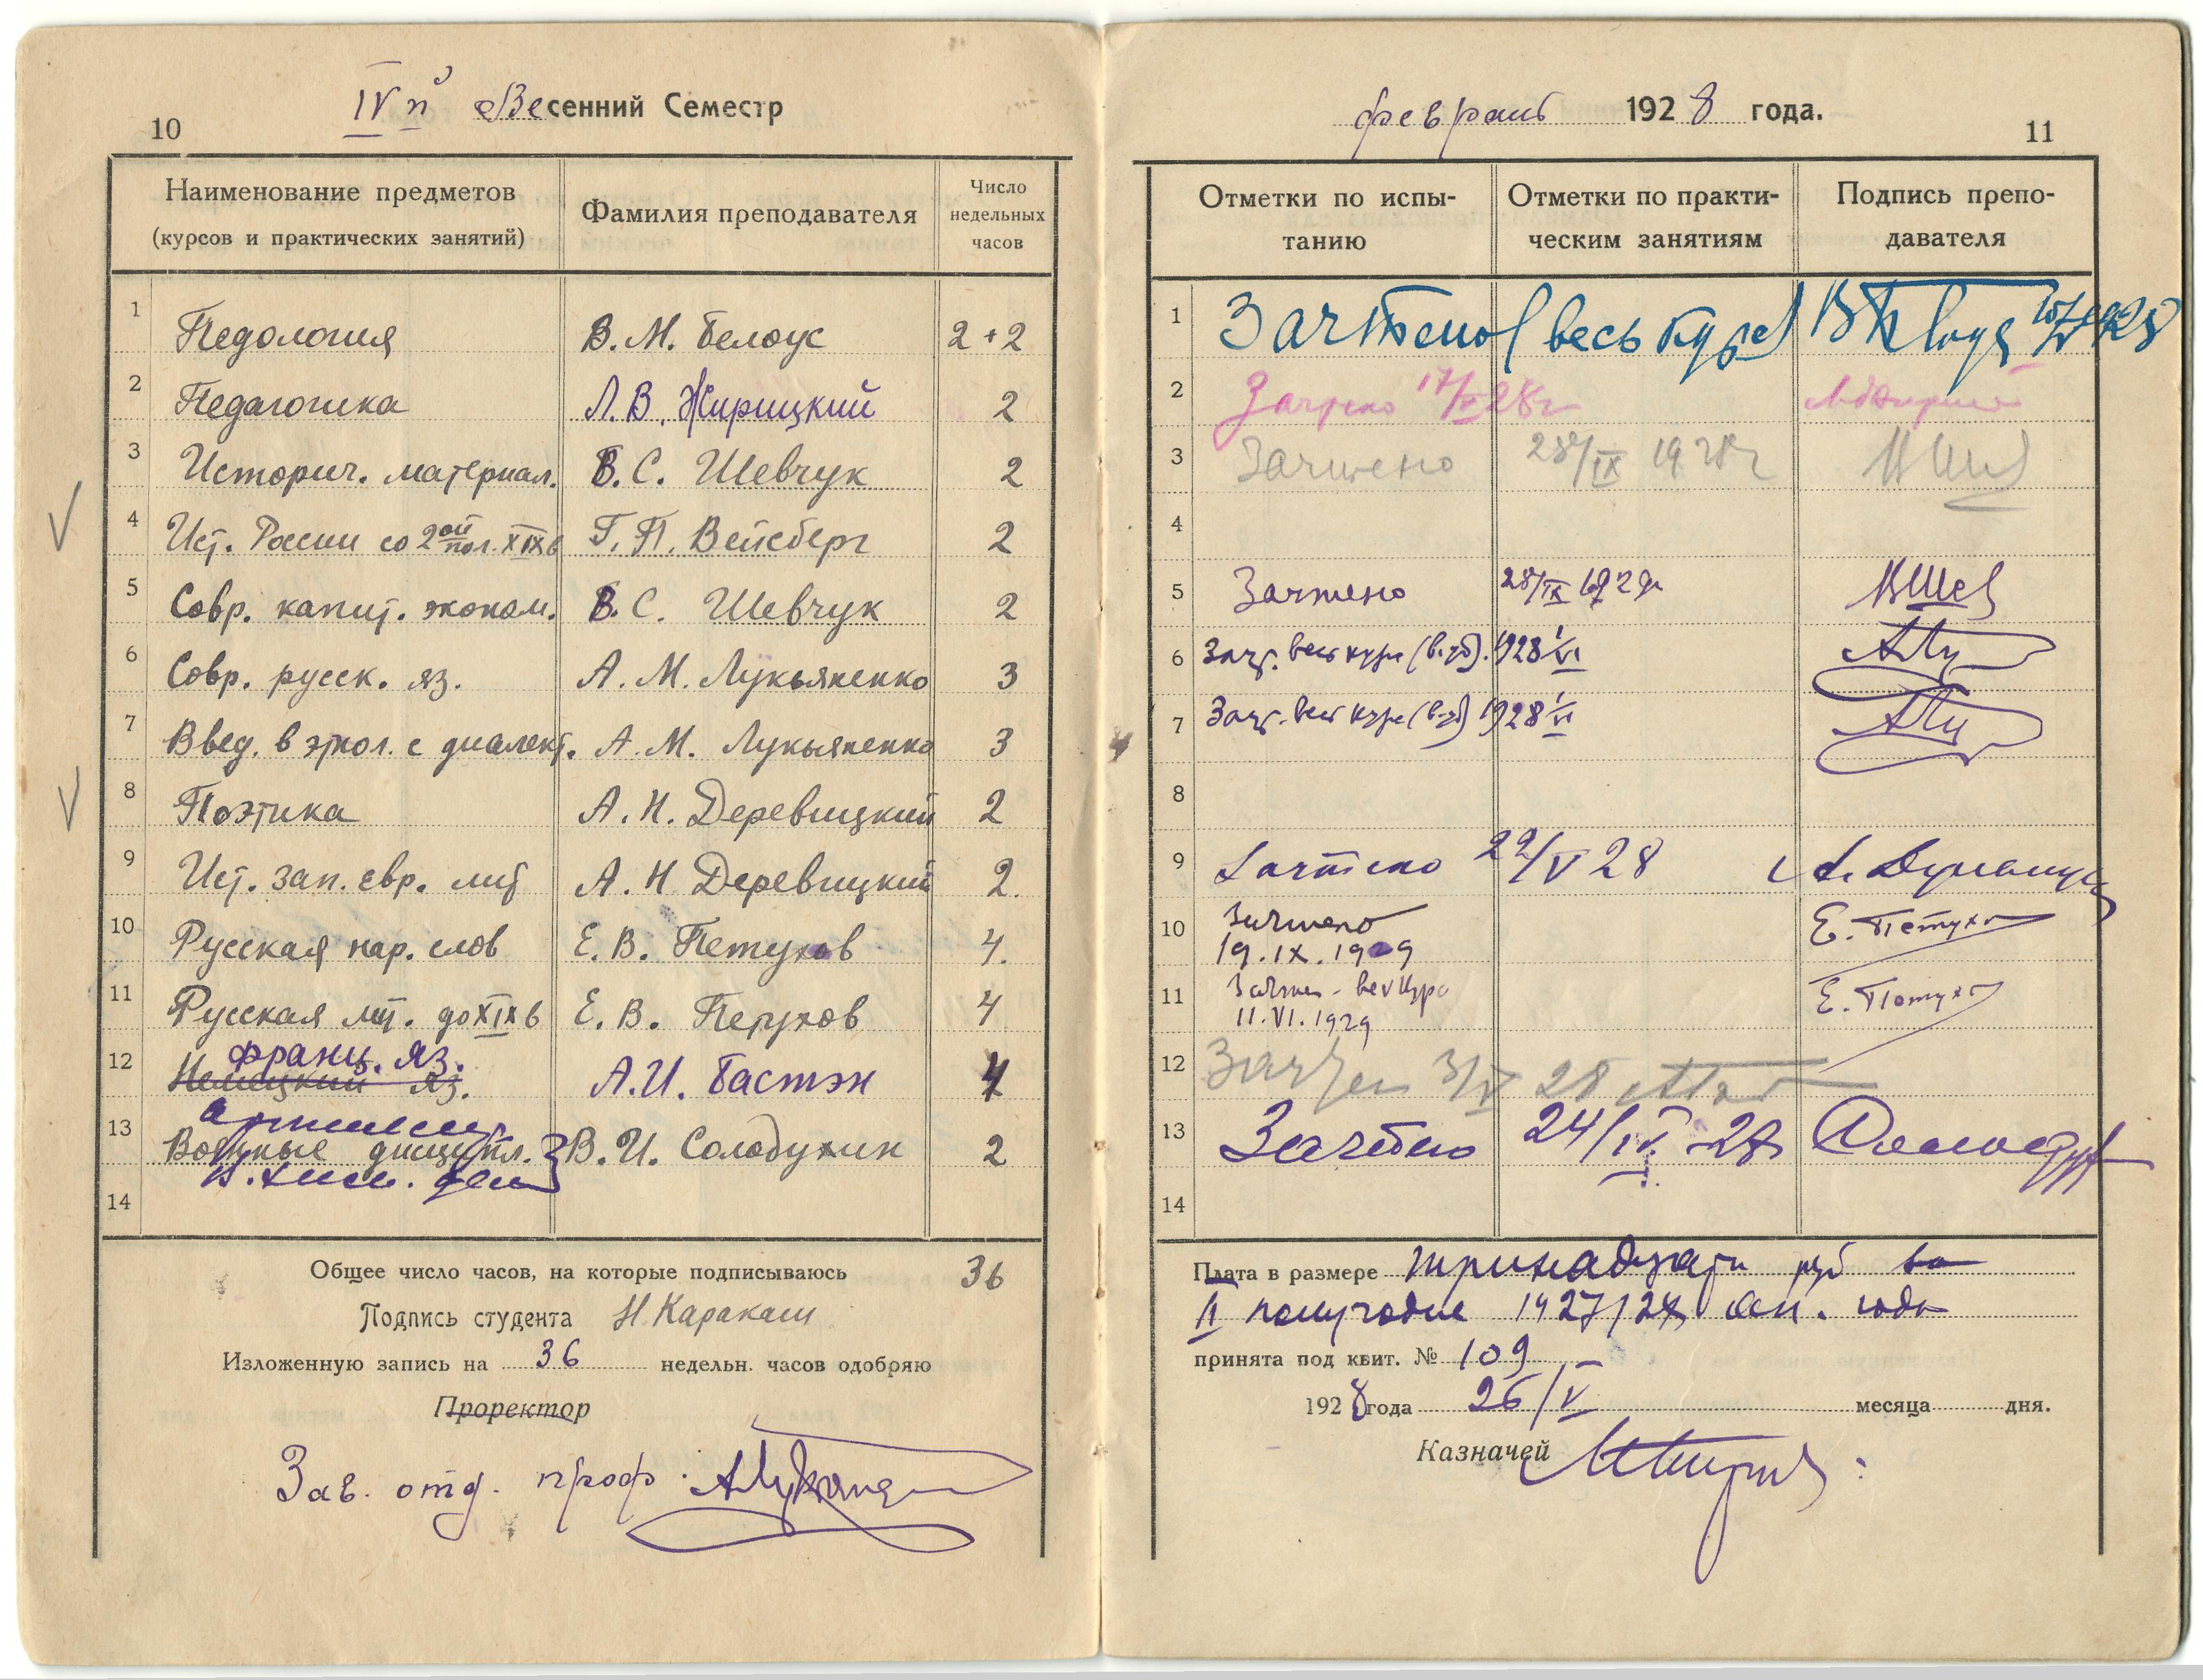 10
IV й Весенний Семестр
Наименование предметов
(курсов и практических занятий)
Фамилия преподавателя
Число
недельных
часов
1 Педология В. М. Белоус 2+2
2 Педагогика Л. В. Жирицкий 2
3 Историч. материал. В. С. Шевчук 2
4 Ист. России со 2ой пол. XIX в Г. П. Вейсберг 2
5 Совр. капит. эконом. В. С. Шевчук 2
6 Совр. русск. яз. А. М. Лукьяненко 3
7 Введ. в этнол. с диалект. А. М. Лукьяненко 3
8 Поэтика А. Н. Деревицкий 2
9 Ист. зап. евр. лит А. Н. Деревицкий 2.
10 Русская нар. слов Е. В. Петухов 4.
11 Русская лит. до XIX в Е. В. Петухов 4
франц. яз.
12 Немецкий яз. А. И. Бастэн 4
13 Военные дисципл. В. И. Солодухин 2
14
Общее число часов, на которые подписываюсь 36
Подпись студента Н. Каракаш
Изложенную запись на 36 недельн. часов одобряю
Проректор
Зав. отд. проф.
февраль 1928 года.
11
Отметки по испы-
танию
Отметки по практи-
ческим занятиям
Подпись препо-
давателя
1 Зачтено (весь курс)
2 Зачтено 17/ 28г
3 Зачтено 28/IX 1928г
4
5 Зачтено 28/IX
6 Зачт. весь курс 1928 1/VI
7 Зачт. весь курс 1928 1/VI
8
9 Зачтено 22/V 28
10 Зачтено Е. Петухов
19. IX. 1929
11 Е. Петухов
11. VI. 1929
12
13 Зачтено 24/IX 28
14
Плата в размере тринадцати руб за
II полугодие 1927/28 ак. года
принята под квит. № 109
1928 года 26/V месяца дня.
Казначей